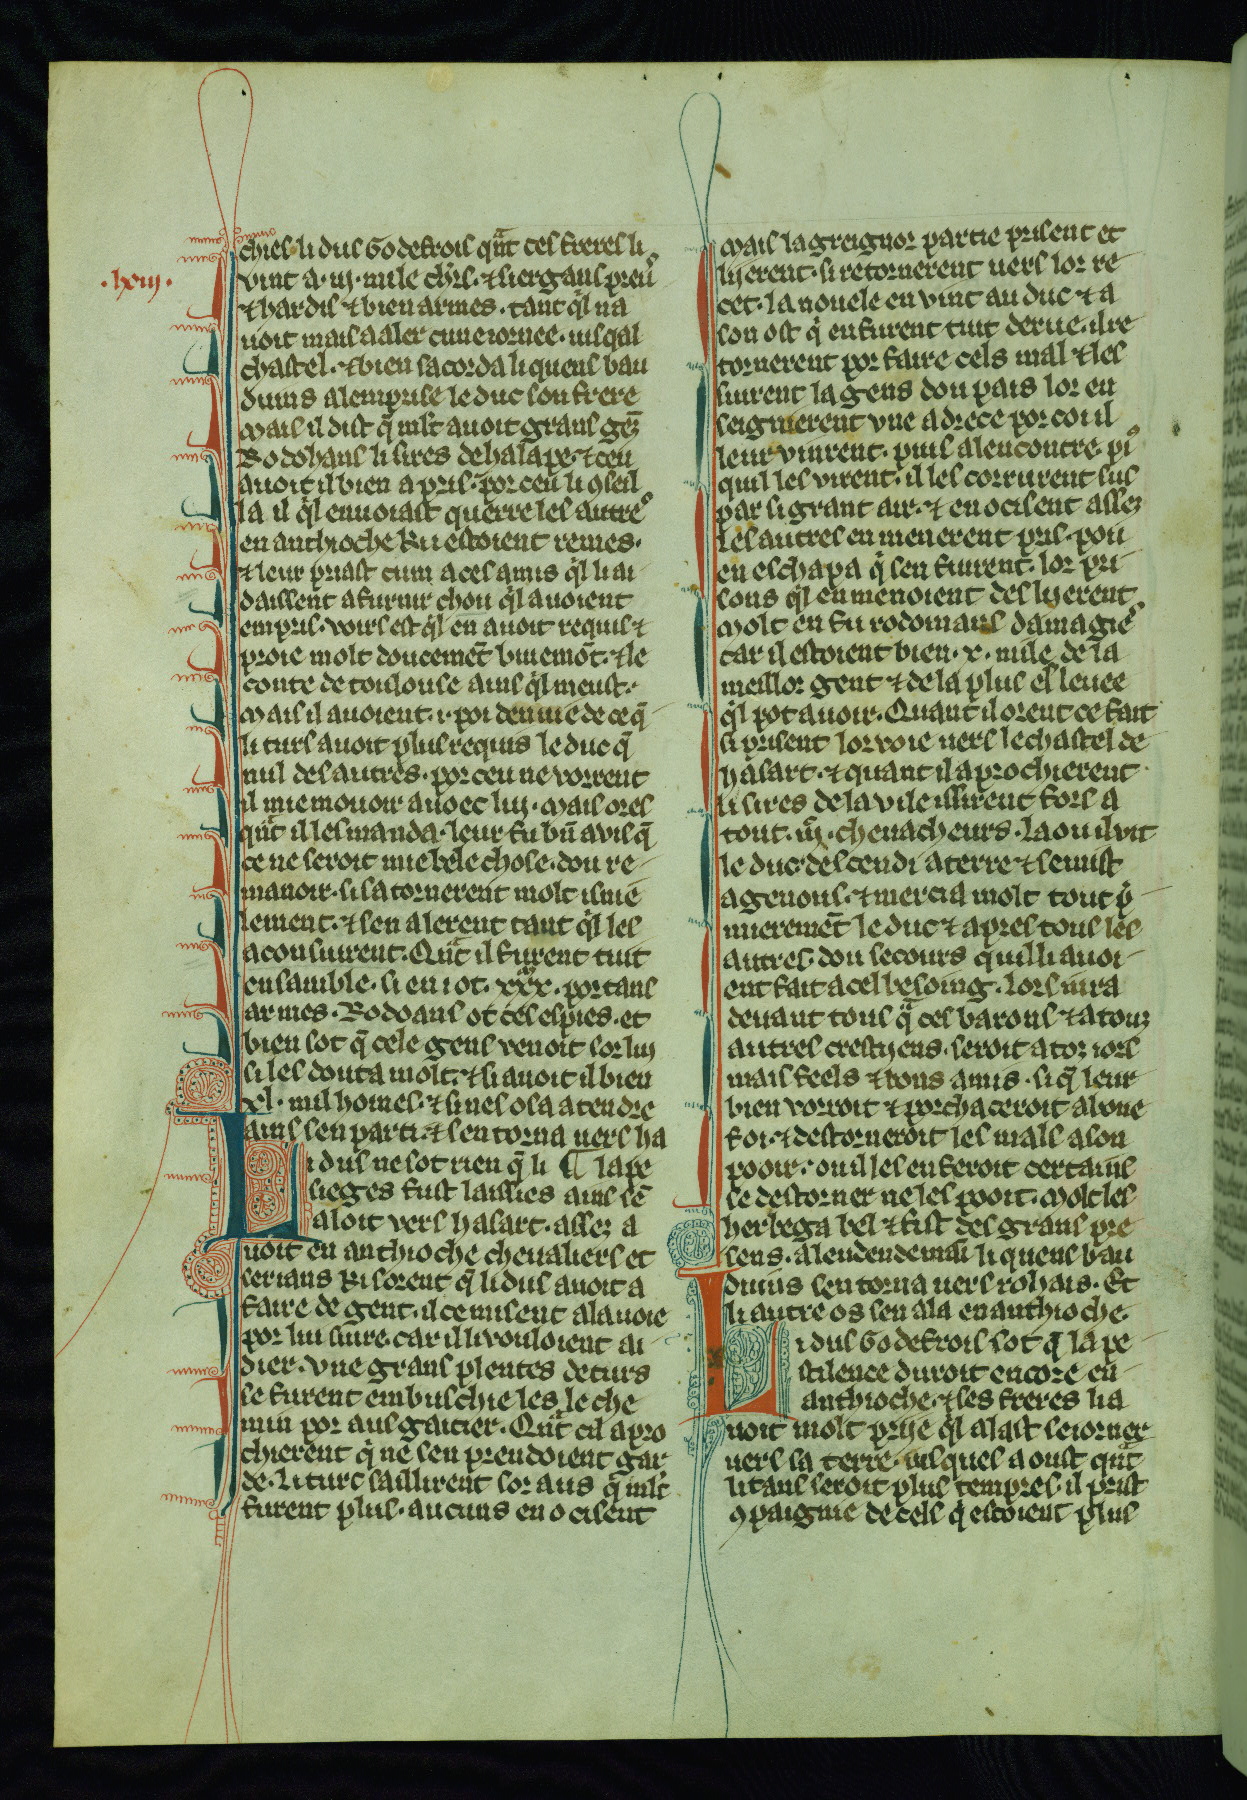 .lxiij.
chiel. li dus Godefrois qͣnt ces freres li
vint a .iij. mile chrs. ⁊ siergans preuꝰ
⁊ hardis ⁊ bien armes. tant qͥl na
uoit mais a aler cune iornee. iusqal
chastel. ⁊ bien sacorda li quens bau
duins alemprise le duc son frere
Mais il dist q̄ mlt auoit grans gēz
Rodohans li sires de halape. ⁊ ceu
auoit il bien apris. por ceu li ꝯseil
la il qͥl enuoiast querre les autreꝰ
en anthioche ki estoient remes.
⁊ leur priast cum a ces amis qͥl li ai
daissent a furnir chou qͥl auoient
empris. voirs est qͥl en auoit requis ⁊
proie molt doucemēt buiemōt. ⁊ le
conte de toulouse ains qͥl meust.
Mais il auoient .i. poi denuie de ce q̄
li turs auoit plus requis le duc q̄
nul des autres. por ceu ne vorrent
il mie mouoir auoec lui. Mais ores
qͣnt il les manda. leur fu bn̄ auis q̄
ce ne seroit mie bele chose. dou re
manoir. si satornerent molt isnie
lement. ⁊ sen alerent tant qͥl les
aconsiurent. Qͣnt il furent tuit
ensamble. si en i ot .xxx. portans
armes. Rodoans ot ces espies. et
bien sot q̄ cele gens venoit sor lui
si les douta molt. ⁊ si auoit il bien
xl. mil homes. ⁊ si nes osa atendre
ains sen parti. ⁊ sen torna uers ha
Li dus ne sot rien q̄ li ¶ lape
sieges fust laissies ains sē
aloit vers hasart. assez a
uoit en anthioche cheualiers et
serians ki sorent q̄ li dus auoit a
faire de gent. il ce misent a la uoie
por lui siure. car il li vouloient ai
dier. Vne grans plentes de turs
se furent embuschie les le che
min por aus gaitier. Qͣnt cil apro
chierent qͥ ne sen prendoient gar
de. li turc saillirent sor aus q̄ mlt
furent plus. aucuns en ocisent
Mais la greignor partie prisent et
lijerent. si retornerent uers lor re
cet. la nouele en vint au duc ⁊ a
son ost qͥ en furent tuit derue. il re
tornerent por faire cels mal ⁊ les
siurent la gens dou pais lor en
seignierent vne adrece por coi il
leur vinrent. puis alencontre. piꝰ
quil les virent. il les corrurent sus
par si grant air. ⁊ en ocisent assez
les autres en menerent pris. pou
en eschapa qͥ sen fuirent. lor pri
sons qͥl en menoient deslijerent
Molt en fu rodomans damagieꝰ
car il estoient bien .x. mile de la
meillor gent ⁊ de la plus esleuee
qͥl pot auoir. Quant il orent ce fait
si prisent lor voie uers le chastel de
hasart. ⁊ quant il aprochierent
li sires de la vile issirent fors a
tout .iij. cheuacheurs. la ou il vit
le duc. descendi a terre ⁊ se mist
a genous. ⁊ mercia molt tout pͥ
mieremēt le duc ⁊ apres tous les
autres. dou secours quil li auoi
ent fait a cel besoing. lors iura
deuant tous q̄ ces barons ⁊ a touz
autres crestijens. seroit a toz iors
mais feels ⁊ bons amis. si q̄ leur
bien vorroit ⁊ porchaceroit a bone
foi. ⁊ destorneroit les mals a son
pooir. ou il les en feroit certains
se destorner ne les pooit. Molt les
herbega bel ⁊ fist des grans pre
sens. a lendendemain li quens bau
duins sen torna uers rohais. Et
li autre os sen ala en anthioche.
Li dus Godefrois sot q̄ la pe
stilence duroit encore en
anthioche. ⁊ ses freres li a
uoit molt prije qͥl alast seiorner
uers sa terre. iusques a oust qͣnt
li tans seroit plus tempres. il prist
ꝯpaignie de cels qͥ estoient plus